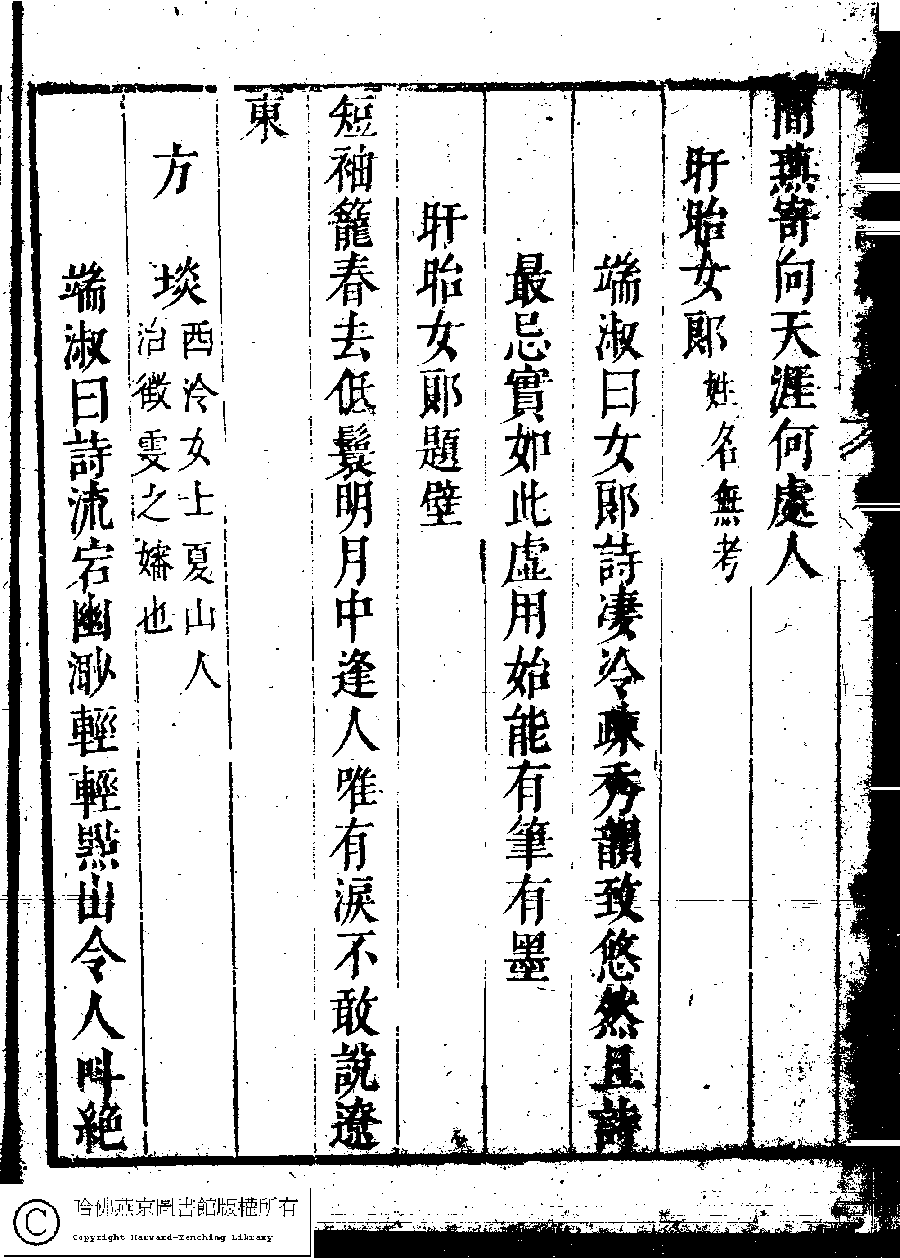 間燕寄向天涯何處人
盱眙女郎姓名無考
端淑曰女郎詩凄冷疎秀韻致悠然且詩
最忌實如此虛用始能有筆有墨
盱眙女郎題壁
短袖籠春去低鬟明月中逢人唯有淚不敢說遼
東
方 琰西泠女士夏山人
治徵雯之嬸也
端淑曰詩流宕幽渺輕輕點出令人呌絶
哈佛燕京圖書館版權所有
Copyright Harvard-Yenching Library